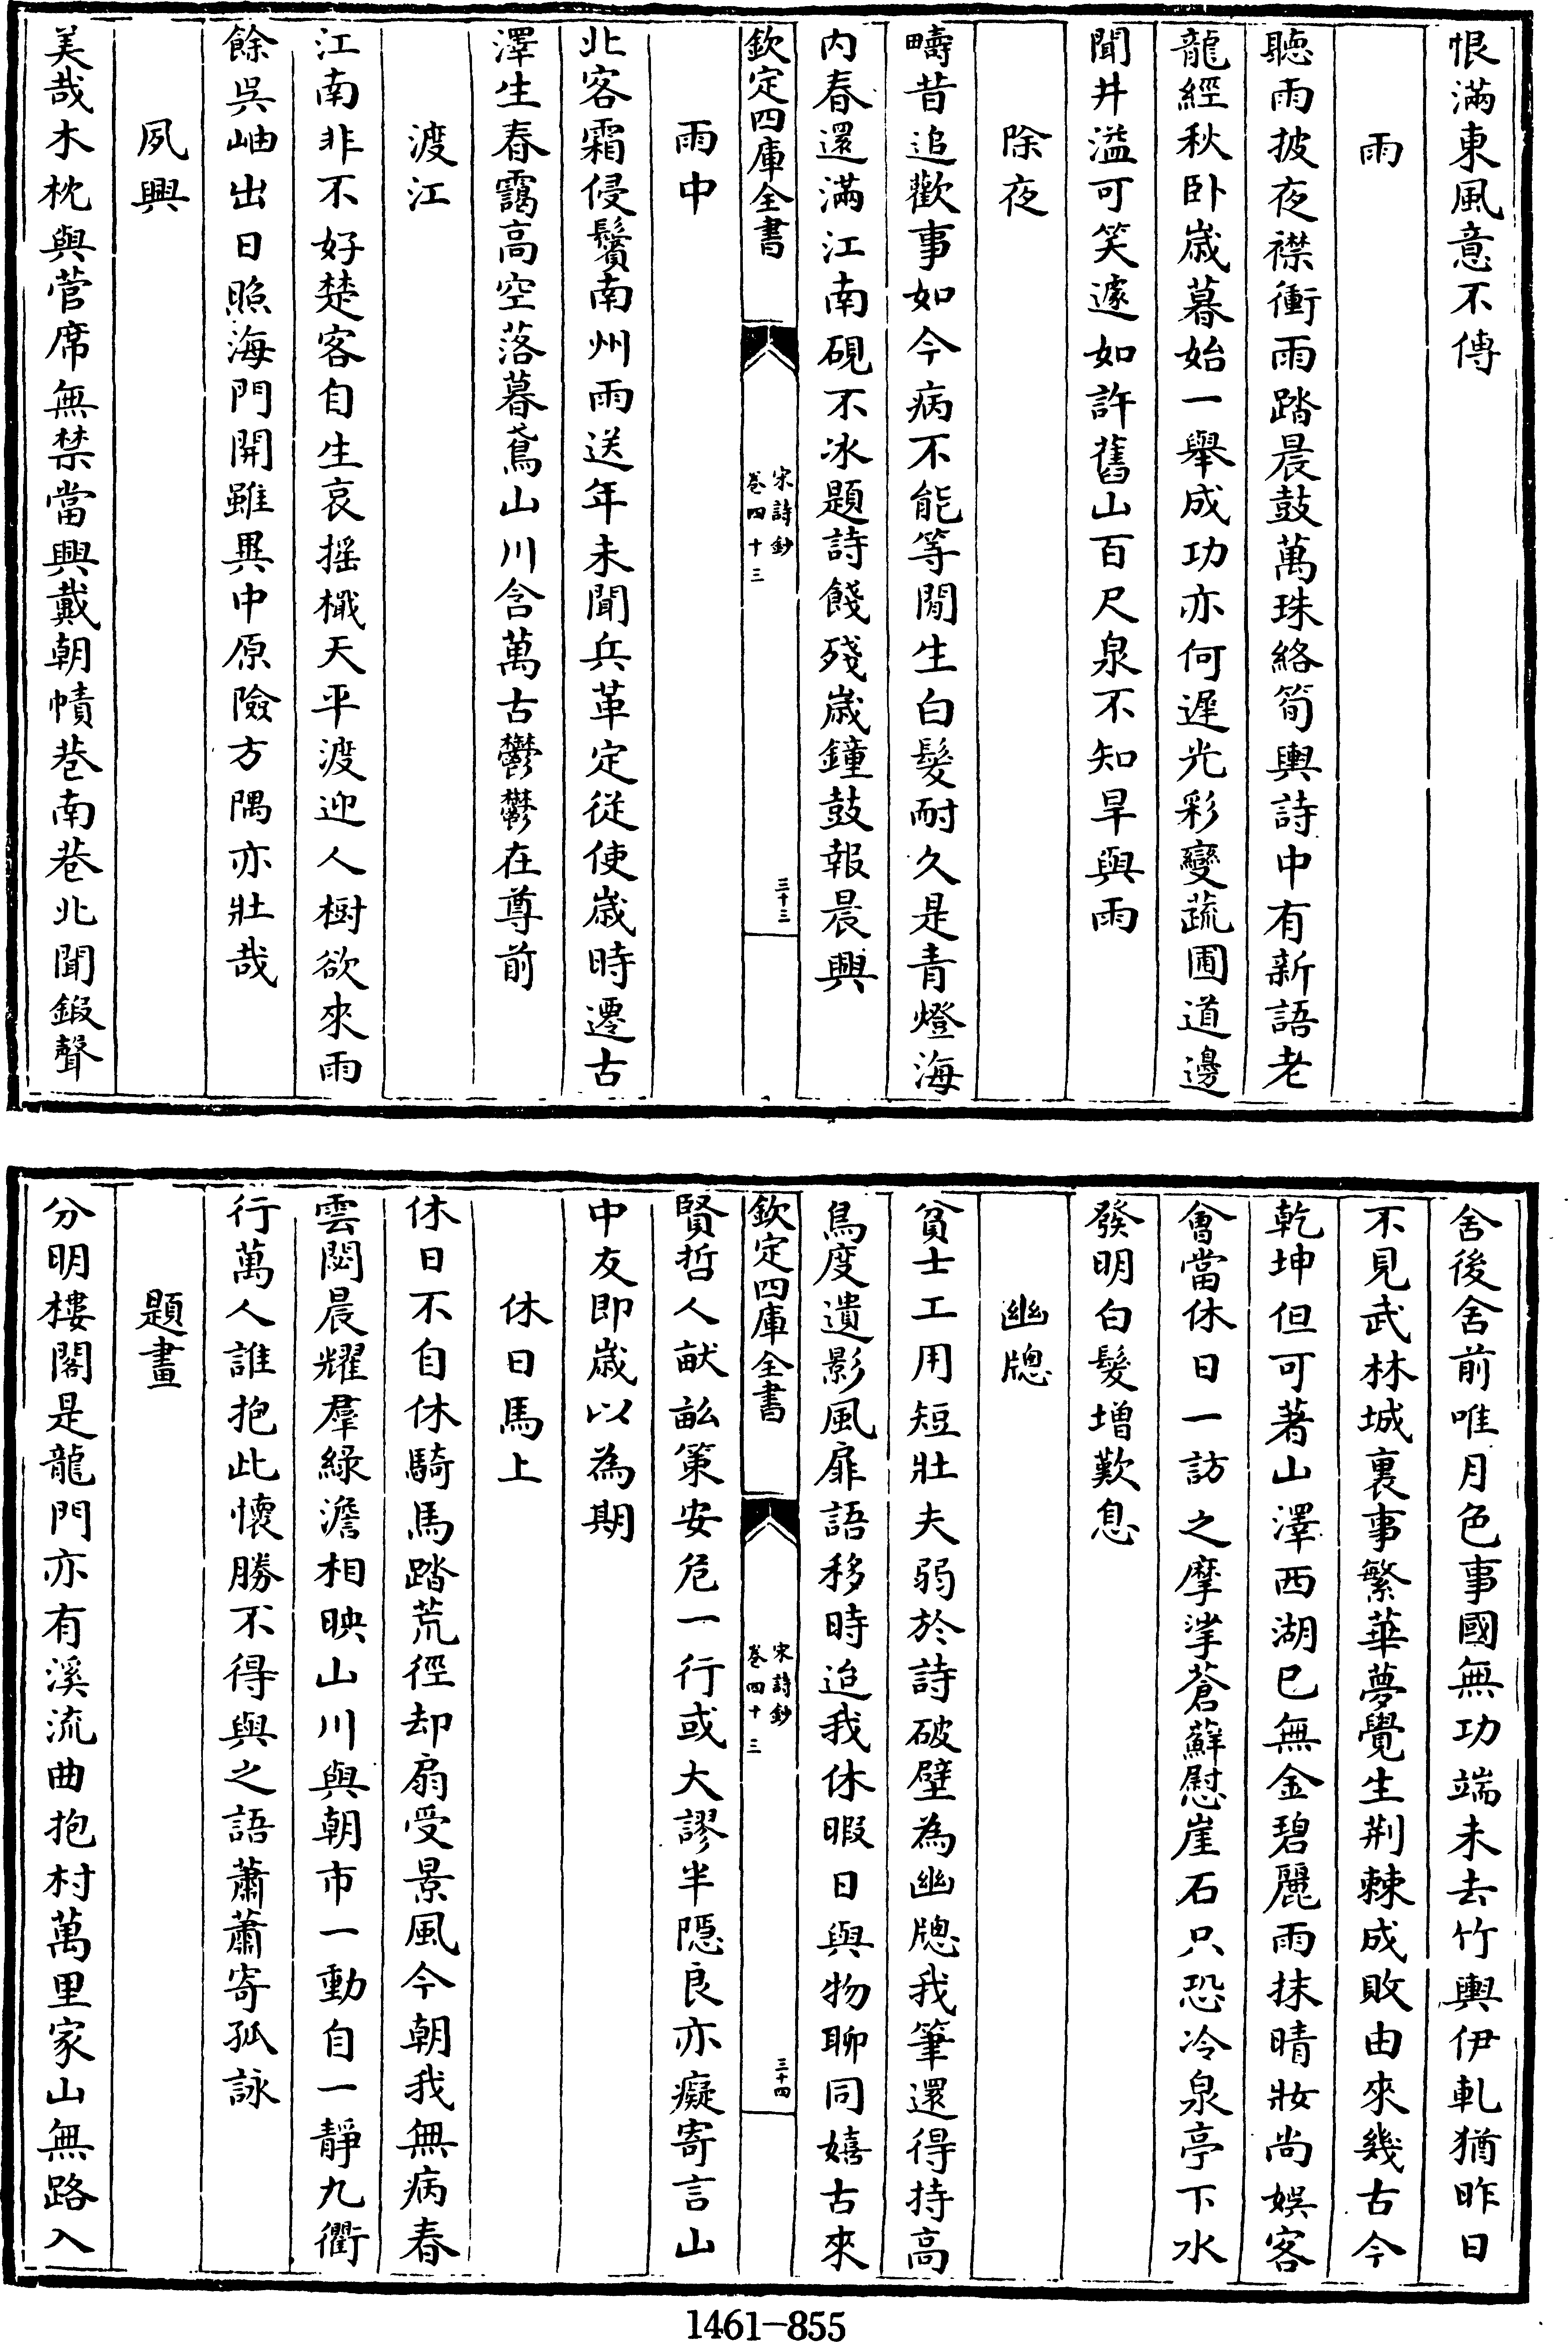 恨滿東風意不傳
雨
聽雨披夜襟衝雨踏晨鼓萬珠絡筍輿詩中有新語老
龍經秋卧歳暮始一舉成功亦何遲光彩變蔬圃道邊
聞井溢可笑遽如許舊山百尺泉不知旱與雨
除夜
疇昔追歡事如今病不能等閒生白髮耐久是青燈海
内春還滿江南硯不冰題詩餞殘歳鐘鼓報晨興
欽定四庫全書
宋詩鈔
卷四十三
三十三
雨中
北客霜侵鬢南州雨送年未聞兵革定從使歳時遷古
澤生春靄高空落暮鳶山川含萬古鬱鬱在尊前
渡江
江南非不好楚客自生哀摇檝天平渡迎人樹欲來雨
餘吳岫出日照海門開雖異中原險方隅亦壯哉
夙興
美哉木枕與菅席無禁當興戴朝幘巷南巷北聞鍛聲
舍後舍前唯月色事國無功端未去竹輿伊軋猶昨日
不見武林城裏事繁華夢覺生荆棘成敗由來幾古今
乾坤但可著山澤西湖已無金碧麗雨抹晴妝尚娛客
會當休日一訪之摩挲蒼蘚慰崖石只恐冷泉亭下水
發明白髮增歎息
幽牕
貧士工用短壯夫弱於詩破壁為幽牕我筆還得持高
鳥度遺影風扉語移時迨我休暇日與物聊同嬉古來
欽定四庫全書
宋詩鈔
卷四十三
三十四
賢哲人畎畝策安危一行或大謬半隱良亦癡寄言山
中友即歳以為期
休日馬上
休日不自休騎馬踏荒徑却扇受景風今朝我無病春
雲閟晨耀羣綠澹相映山川與朝市一動自一靜九衢
行萬人誰抱此懷勝不得與之語蕭蕭寄孤詠
題畫
分明樓閣是龍門亦有溪流曲抱村萬里家山無路入
1461-855